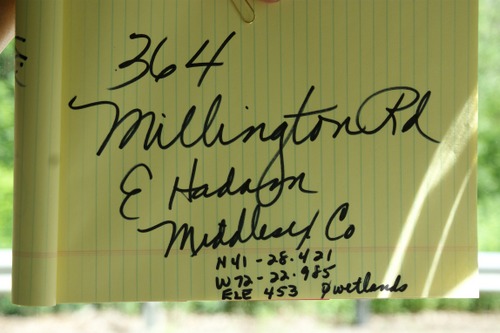 364
Millington Rd
E Hadam
Middlesex Co
N41-28.421
W72-22.985
ELE 453 wetlands